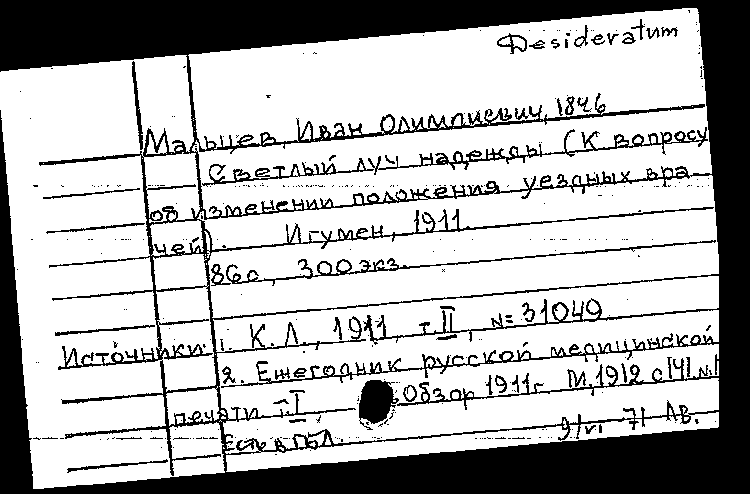 Desideratum
Мальцев, Иван Олимпиевич, 1846
Светлый луч надежды (К вопросу
об изменении положения уездных вра-
чей). Игумен, 1911.
86с., 300 экз.
Источники: 1. К.Л., 1911, т. II, № 31049
2. Ежегодник русской медицинской
печати т. I, Обзор 1911г М, 1912 с 141 №1
Есть в ГБЛ. 9/VI-71 АВ.